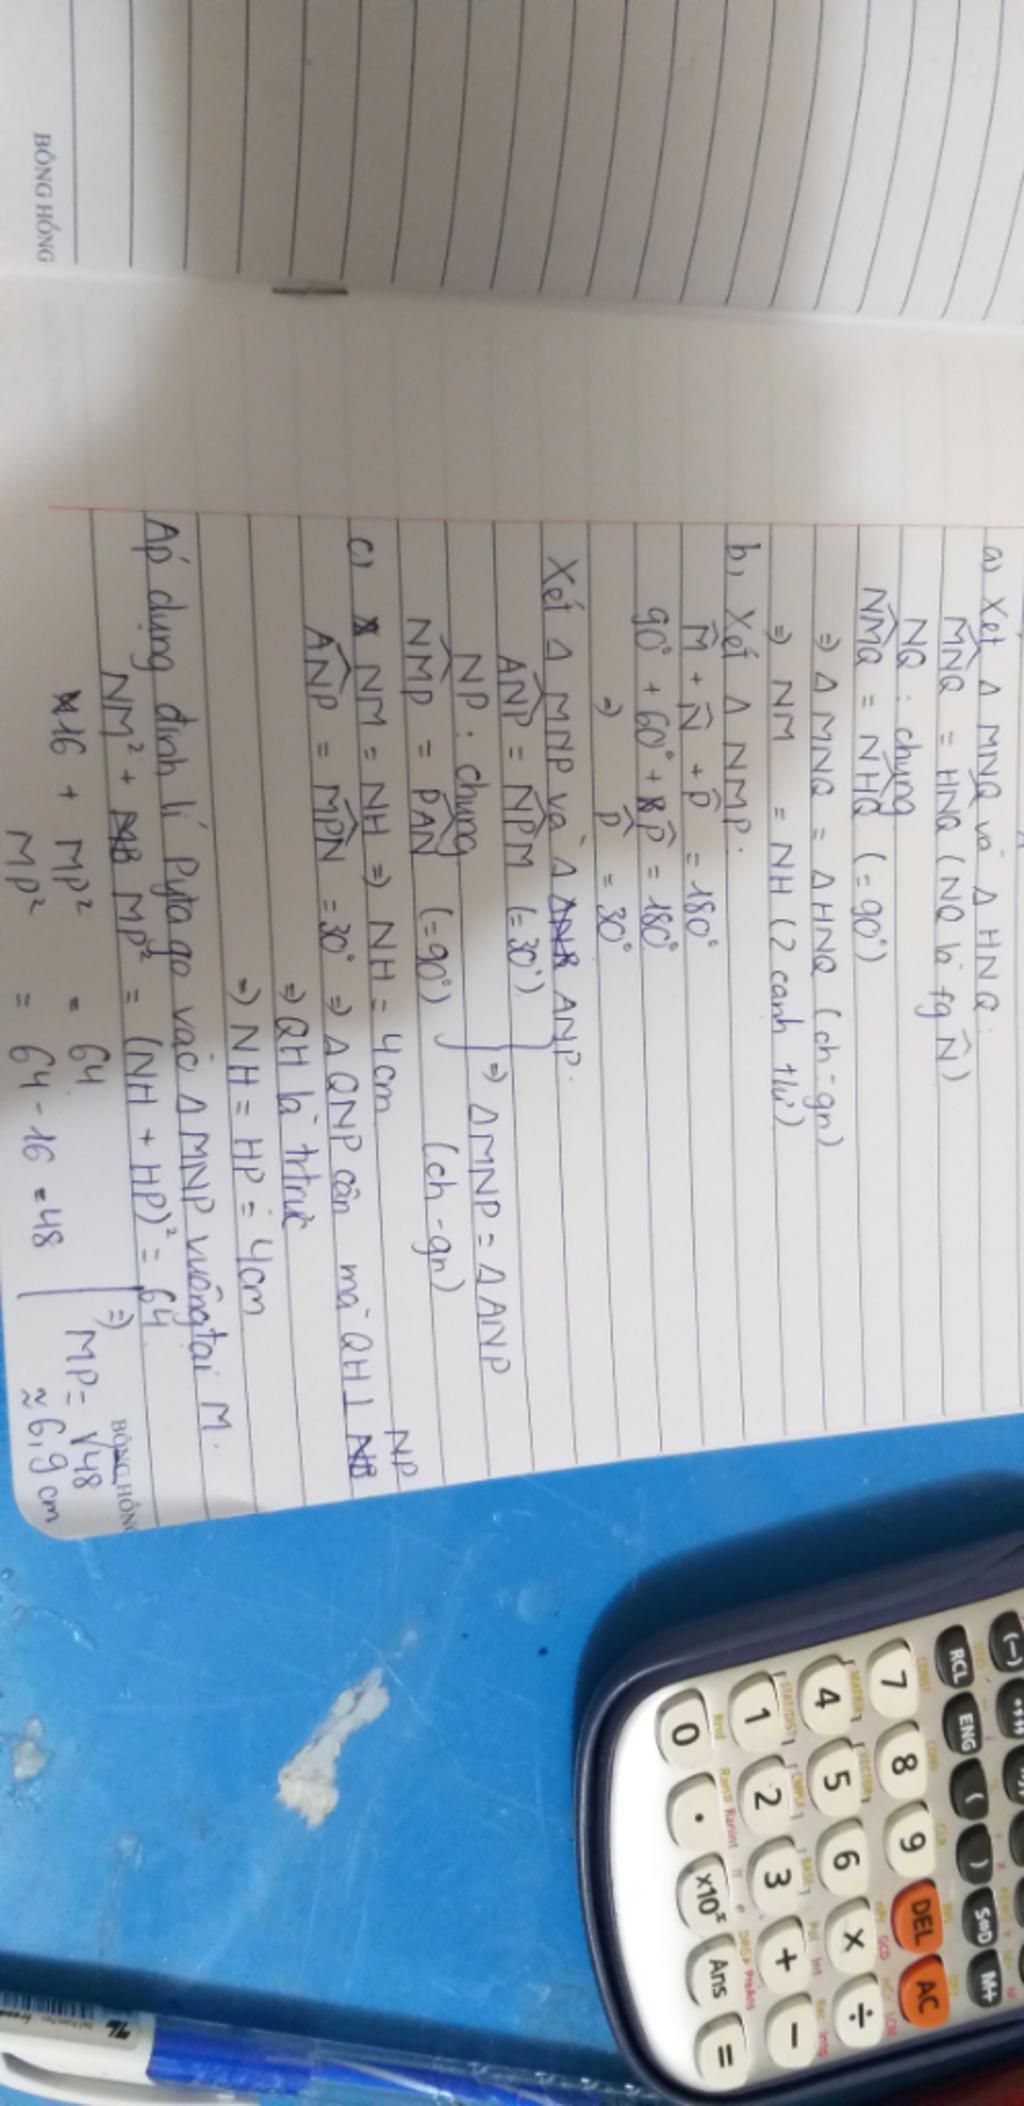 BÔNG HỒNG
a) Xét Δ MNQ và Δ HNQ:
MNQ = HNQ (NQ là fg N̂)
NQ: chung
NMQ = NHQ (= 90°)
⇒ Δ MNQ = Δ HNQ (ch - gn)
⇒ NM = NH (2 cạnh tứ)
b, Xét Δ NMP.
M̂ + N̂ + P̂ = 180°
90° + 60° + P̂ = 180°
⇒ P̂ = 30°
Xét Δ MNP và Δ ANP.
ANP = NPM (= 30°)
NP: chung
NMP = PAN (= 90°)
⇒ Δ MNP = Δ ANP
(ch - gn)
c) NM = NH ⇒ NH = 4cm
ANP = MPN = 30° ⇒ Δ QNP cân mà QH ⊥ NP
⇒ QH là trtrực
⇒ NH = HP = 4cm
Áp dụng định lí Pytago vào Δ MNP vuông tại M.
NM² + MP² = (NH + HP)² = 64
16 + MP² = 64
MP² = 64 - 16 = 48
⇒ MP = √48
≈ 6,9 cm
BÔNG HỒNG
(-)
RCL
ENG
(
)
S⇔D
M+
7
8
9
DEL
AC
4
5
6
×
÷
1
2
3
+
−
0
.
×10ˣ
Ans
=